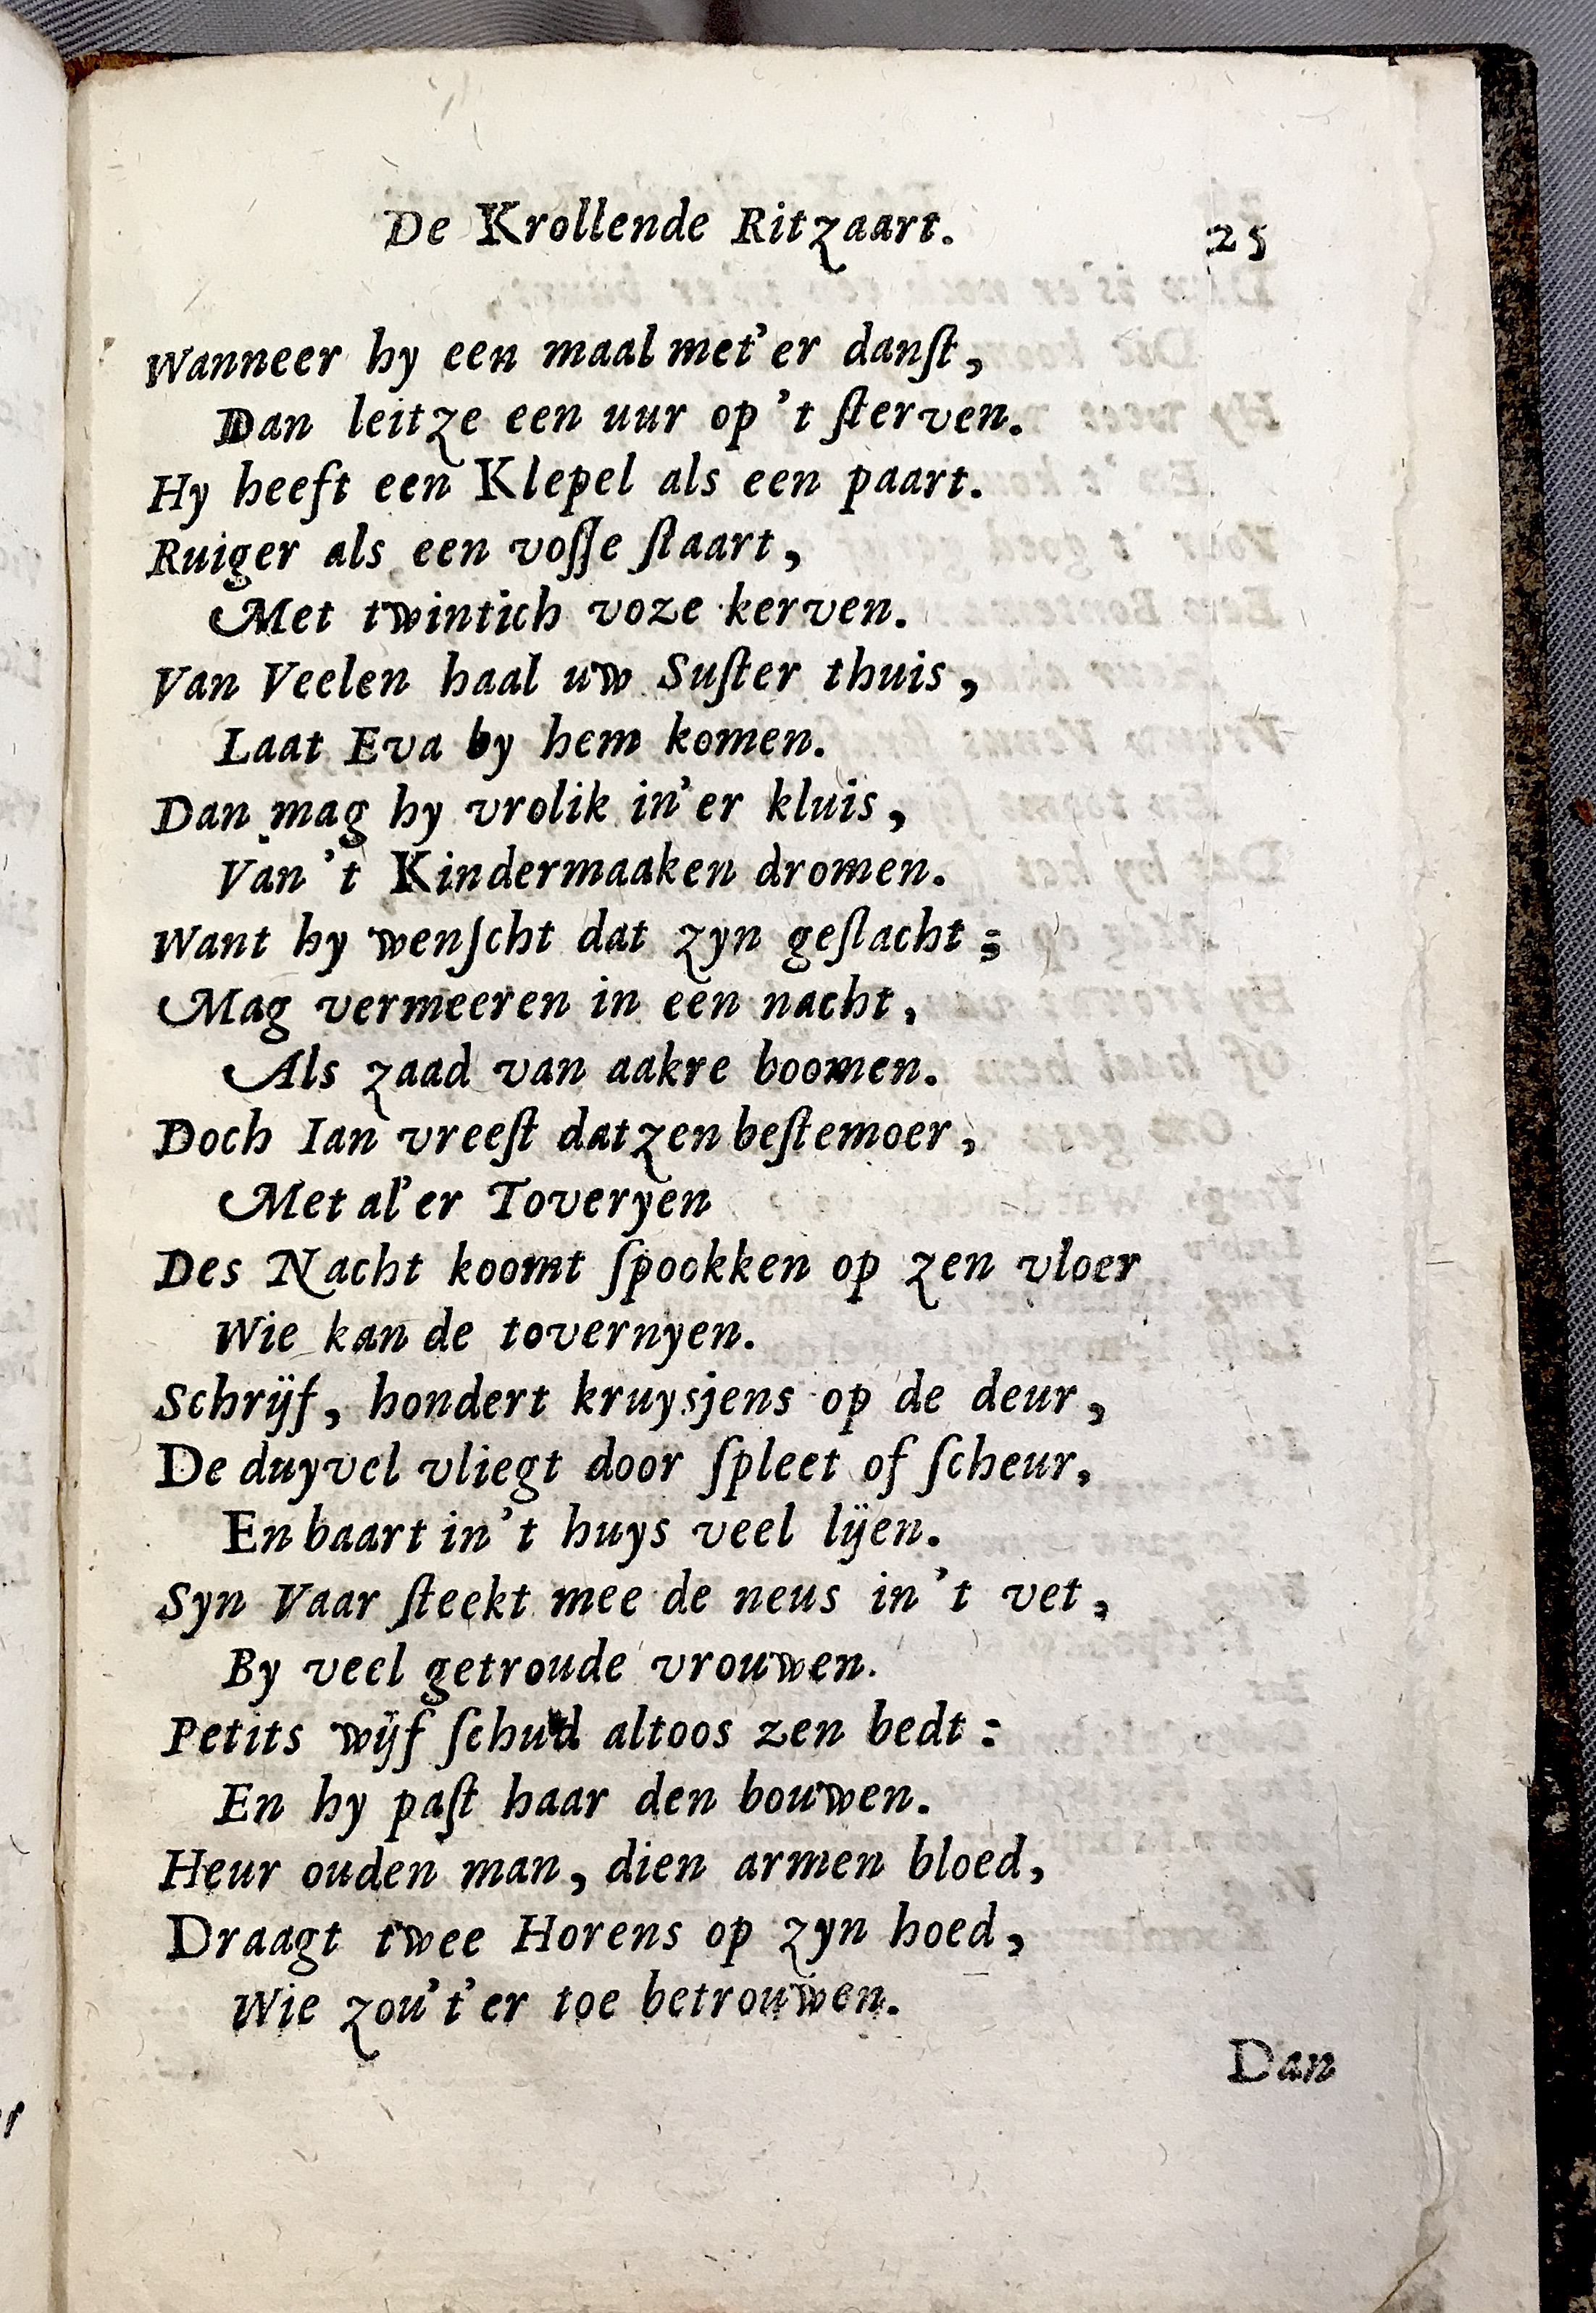 De Krollende Ritzaart. 25
Wanneer hy een maal met'er danſt,
Dan leitze een uur op 't ſterven.
Hy heeft een Klepel als een paart.
Ruiger als een voſſe ſtaart,
Met twintich voze kerven.
Van Veelen haal uw Suſter thuis,
Laat Eva by hem komen.
Dan mag hy vrolik in'er kluis,
Van 't Kindermaaken dromen.
Want hy wenſcht dat zyn geſlacht;
Mag vermeeren in een nacht,
Als zaad van aakre boomen.
Doch Ian vreeſt datzen beſtemoer,
Met al'er Toveryen
Des Nacht koomt ſpookken op zen vloer
Wie kan de tovernyen.
Schrijf, hondert kruysjens op de deur,
De duyvel vliegt door ſpleet of ſcheur,
En baart in't huys veel lijen.
Syn Vaar ſteekt mee de neus in 't vet,
By veel getroude vrouwen.
Petits wijf ſchud altoos zen bedt:
En hy paſt haar den bouwen.
Heur ouden man, dien armen bloed,
Draagt twee Horens op zyn hoed,
Wie zou't'er toe betrouwen.
Dan